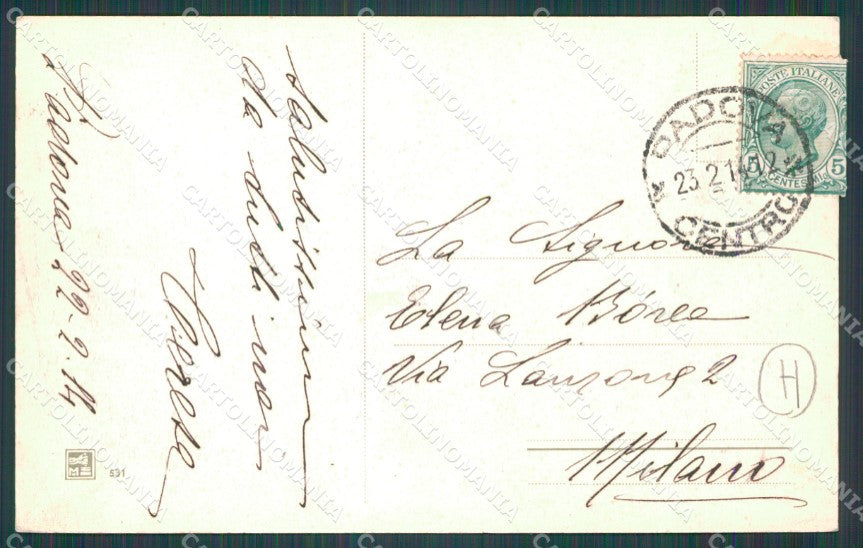 Padova 22-2-14
Salutissimi
da tutti noi
POSTE ITALIANE
5 5
CENTESIMI
PADOVA
23.2.14
CENTRO
La Signora
Elena Bórea
Via Lanzone 2
Milano
H
531
CARTOLINOMANIA